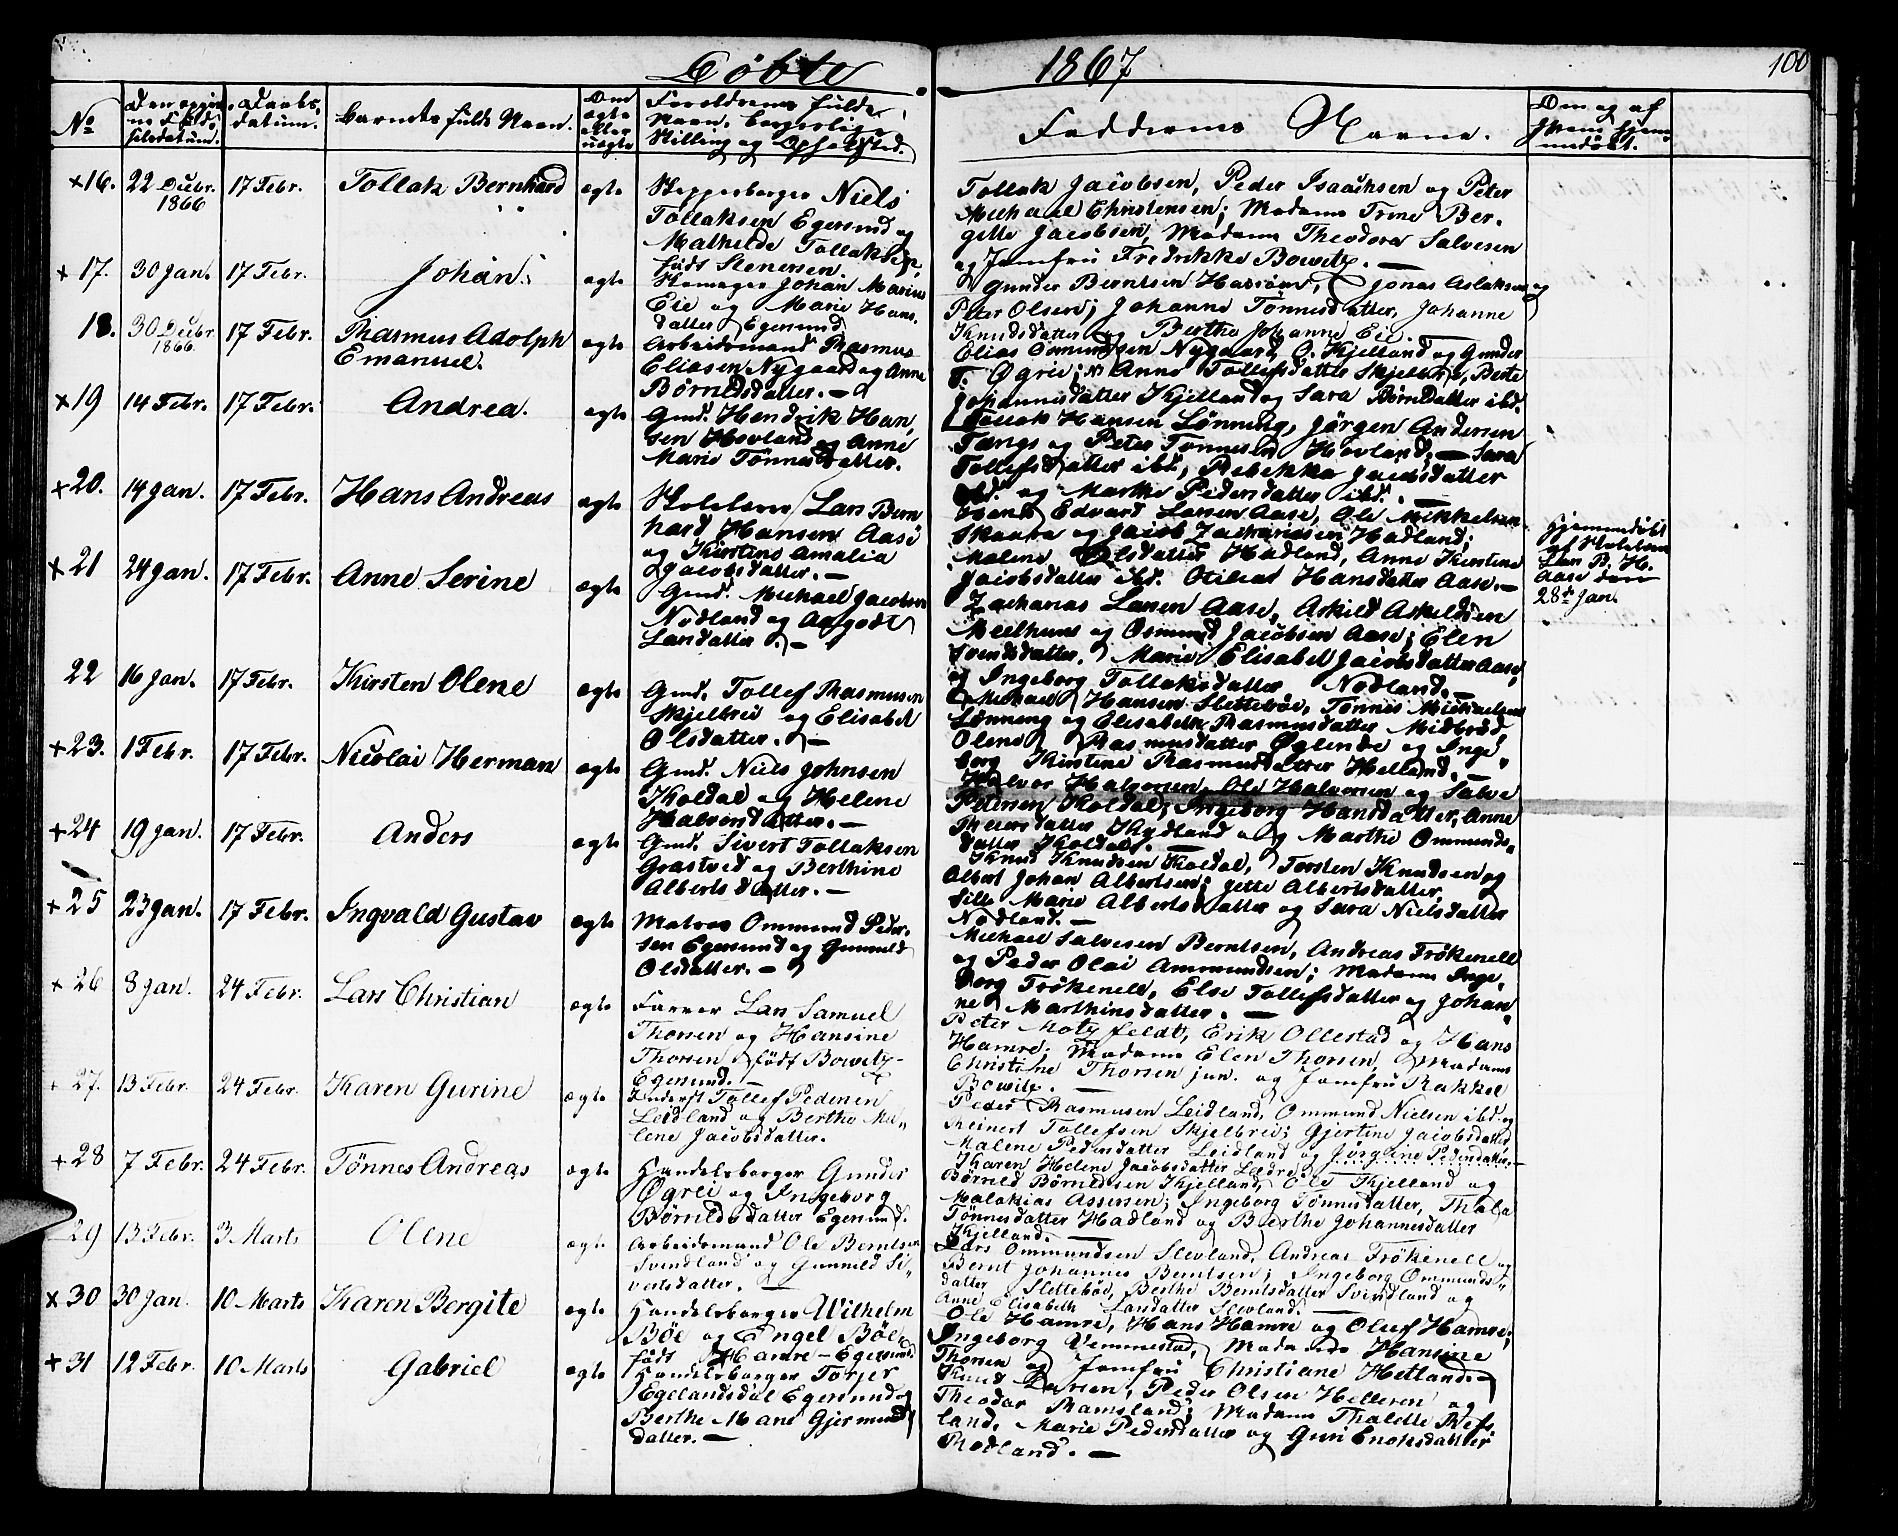 Döbte 1867 100
No
Den opgivne Fødselsdatum.
Daabsdatum.
Barnets fulde Navn.
Om ægte eller uægte
Forældrenes fulde Navn, borgerlige Stilling og Opholdsted.
Faddernes Navne.
Om og af hvem hjemmedøbt.
+16. 22 Decbr. 1866 17 Febr. Tollak Bernhard ægte
Skipperborger Niels
Tollaksen Egersund og
Mathilde Tollaksen,
født Stenersen.
Tollak Jacobsen, Peder Isaachsen og Peter
Michael Christensen; Madame Trine Ber-
gette Jacobsen, Madame Theodora Salvesen
og Jomfru Fredrikke Bowitz. —
+17. 30 Jan. 17 Febr. Johan. ægte
Skomager Johan Marius
Eie og Marie Hans-
datter Egersund
Gunder Berntsen Havsöen, Jonas Aslaksen og
Peter Olsen; Johanne Tönnesdatter, Johanne
Knudsdatter og Berthe Johanne Eie. —
18. 30 Decbr. 1866 17 Febr. Rasmus Adolph
Emanuel. ægte
Arbeidsmand Rasmus
Eliasen Nygaard og Anne
Börnildsdatter. —
Elias Osmundsen Nygaard, O. Kjelland og Gunder
T. Øgrei; Anne Tollefsdatter Skjelbrei, Berte
Johannesdatter Kjelland og Sara Börnildsdatter ibd.
+19 14 Febr. 17 Febr. Andrea. ægte
Gmd. Hendrik Han-
sen Hovland og Anne
Marie Tönnesdatter.
Tollak Hansen Lönning, Jörgen Andersen
Tengs og Peter Tönnesen Hovland; — Sara
Tollefsdatter ibd., Rebekka Jacobsdatter
ibd. og Marthe Pedersdatter ibd. —
+20. 14 Jan. 17 Febr. Hans Andreas ægte
Skolelærer Lars Bern
hard Hansen Aase
og Kirstine Amalia
Jacobsdatter. —
Hans Edvart Larsen Aase, Ole Mikkelsen
Skaara og Jacob Zachariasen Hadland;
Malene Olsdatter Hadland, Anne Kirstine
Jacobsdatter ibd. Otilias Hansdatter Aase. —
Hjemmedöbt
af Skolelærer
Lars B. H.
Aase den
28de Jan.
+21 24 Jan. 17 Febr. Anne Serine ægte
Gmd. Michael Jacobsen
Nodland og Aagodt
Larsdatter. —
Zacharias Larsen Aase, Askild Askeldsen
Meelhuus og Osmund Jacobsen Aase; Elen
Svendsdatter, Marie Elisabet Jacobsdatter Aase,
og Ingeborg Tollaksdatter Nodland. —
22 16 Jan. 17 Febr. Kirsten Olene ægte
Gmd. Tollef Rasmusen
Skjelbrei og Elisabet
Olsdatter. —
Michael Hansen Slettebøe, Tönnes Michaelsen
Lönning og Elisabeth Rasmusdatter Midbröd
Olene Rasmusdatter Øglende og Inge-
borg Kirstine Rasmusdatter Helland. —
+23. 1 Febr. 17 Febr. Nicolai Herman ægte
Gmd. Niels Johnsen
Koldal og Helene
Halvorsdatter. —
Halvor Halvorsen, Ole Halvorsen og Salve
Petersen Koldal; Ingeborg Hansdatter, Anne
Petersdatter Kydland og Marthe Ommunds-
datter Koldal. —
+24 19 Jan. 17 Febr. Anders ægte
Gmd. Sivert Tollaksen
Grastveit og Berthine
Albertsdatter. —
Knud Knudsen Koldal, Torsten Knudsen og
Albert Johan Albertsen; Jette Albertsdatter,
Sille Marie Albertsdatter og Sara Nielsdatter
Nodland. —
+25 23 Jan. 17 Febr. Ingvald Gustav ægte
Matros Ommund Peder-
sen Egersund og Gunnild
Olsdatter. —
Michael Salvesen Berntsen, Andreas Frökenell
og Peder Olai Ammundsen; Madame Inge-
borg Frökenell, Else Tollefsdatter og Johan-
ne Marthinsdatter. —
+26 8 Jan. 24 Febr. Lars Christian ægte
Farver Lars Samuel
Thorsen og Hansine
Thorsen født Bowitz-
Egersund. —
Peter Motzfeldt, Erik Ollestad og Hans
Hamre; Madame Elen Thorsen, Madame
Christine Thorsen jun. og Jomfru Rakkel
Bowitz. —
+27. 13 Febr. 24 Febr. Karen Gurine ægte
Inderst Tollef Pedersen
Leidland og Berthe Ma-
lene Jacobsdatter.
Peder Rasmusen Leidland, Ommund Nielsen ibd. og
Reinert Tollefsen Skjelbrei; Gjertine Jacobsdatter
Malene Pedersdatter Leidland og Jörgine Pedersdatter. —
+28 7 Febr. 24 Febr. Tönnes Andreas ægte
Handelsborger Gunder
Øgrei og Ingeborg
Börnildsdatter Egersund.
Karen Helene Jacobsdatter
Börnild Börnildsen Kjelland, Ole Kjelland og
Malakias Assersen; Ingeborg Tönnesdatter, Thala
Tönnesdatter Hadland og Berthe Johannesdatter
Kjelland. —
29 13 Febr. 3 Marts Olene ægte
Arbeidsmand Ole Berntsen
Svindland og Gunnild Si-
vertsdatter. —
Lars Ommundsen Slevland, Andreas Frökenell og
Bernt Johannes Berntsen; Ingeborg Ommunds-
datter Slettebøe, Berthe Berntsdatter Svindland og
Anne Elisabeth Larsdatter Slevland. —
x 30 30 Jan. 10 Marts Karen Bergite ægte
Handelsborger Wilhelm
Böe og Engel Böe,
født Hamre - Egersund.
Ole Hamre, Hans Hamre og Oluf Hamre;
Ingeborg Vemmestad, Madame Hansine
Thorsen og Jomfru Christiane Hetland. —
+ 31 12 Febr. 10 Marts Gabriel ægte
Handelsborger Torjer
Egelandsdal Egersund og
Berthe Marie Gjermunds
datter. —
Knud Larsen, Peder Olsen Helleren og
Theodor Ramsland; Madame Thalette Refs-
land, Marie Pedersdatter og Guri Enoksdatter
Rodland. —